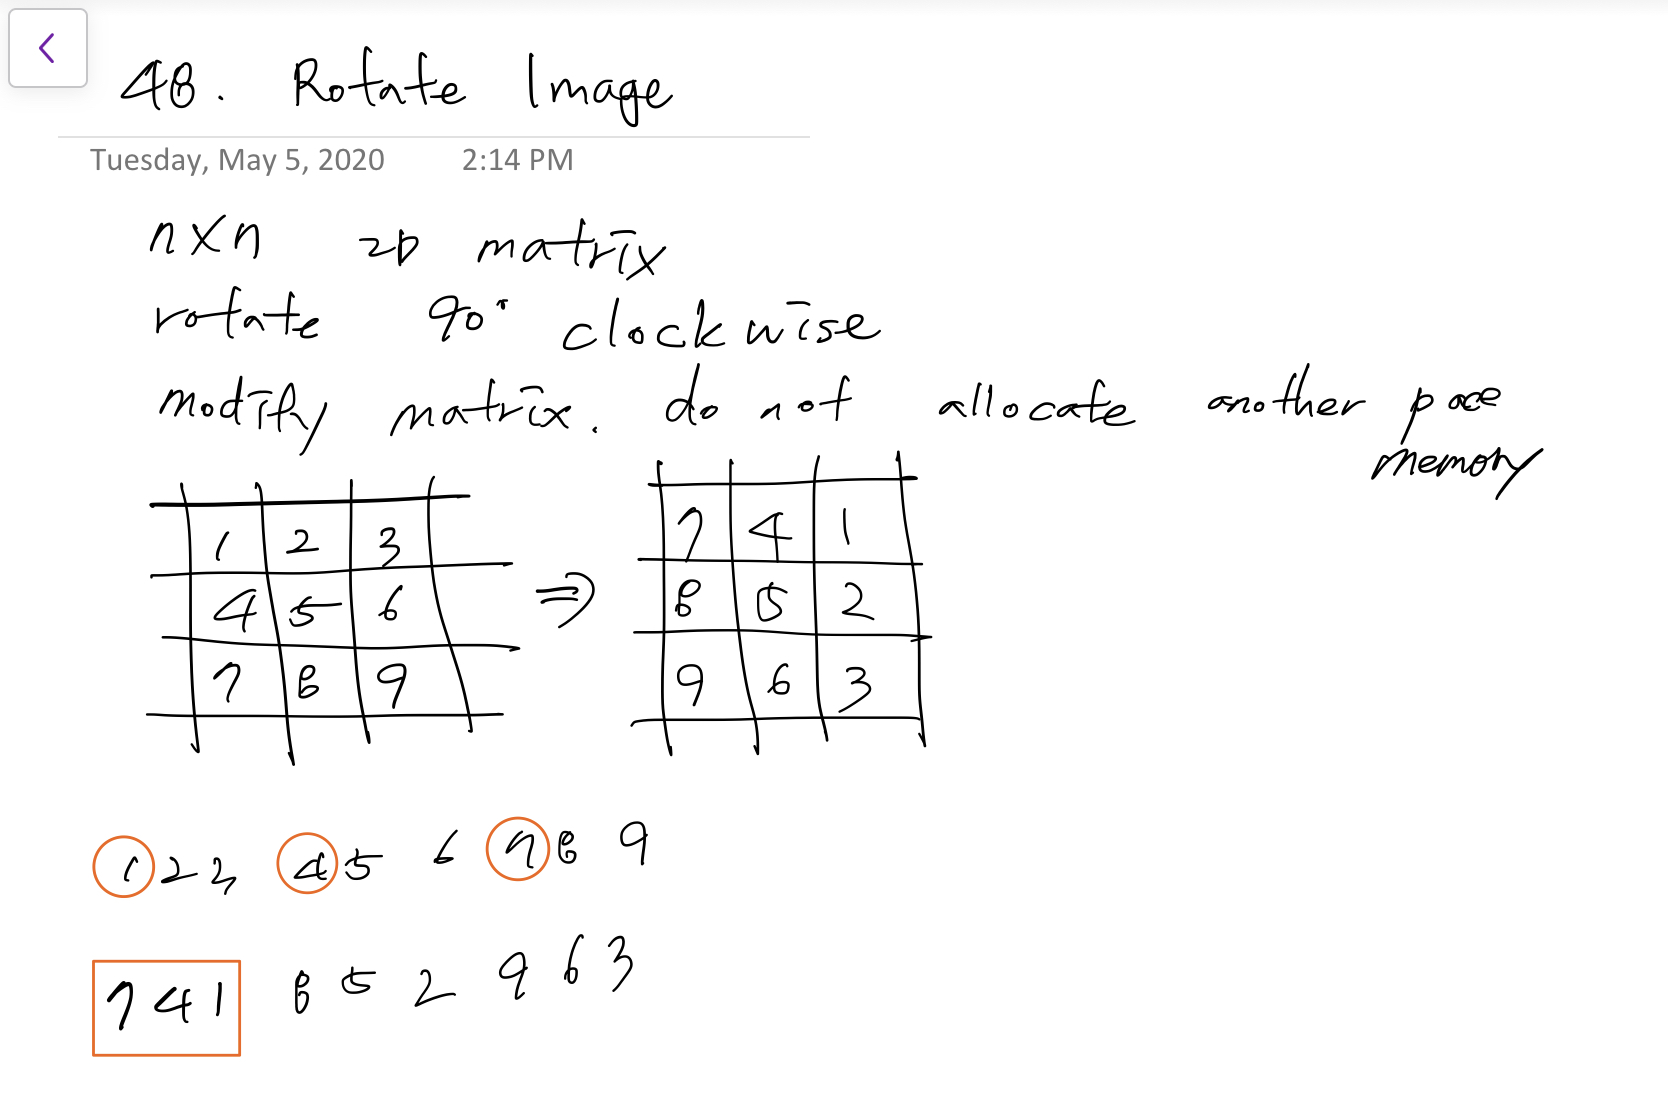 48. Rotate Image
Tuesday, May 5, 2020 2:14 PM
n×n 2D matrix
rotate 90° clockwise
modify matrix. do not allocate another
memory
1 2 3
4 5 6
7 8 9
⇒
7 4 1
8 5 2
9 6 3
1 2 3 4 5 6 7 8 9
7 4 1 8 5 2 9 6 3